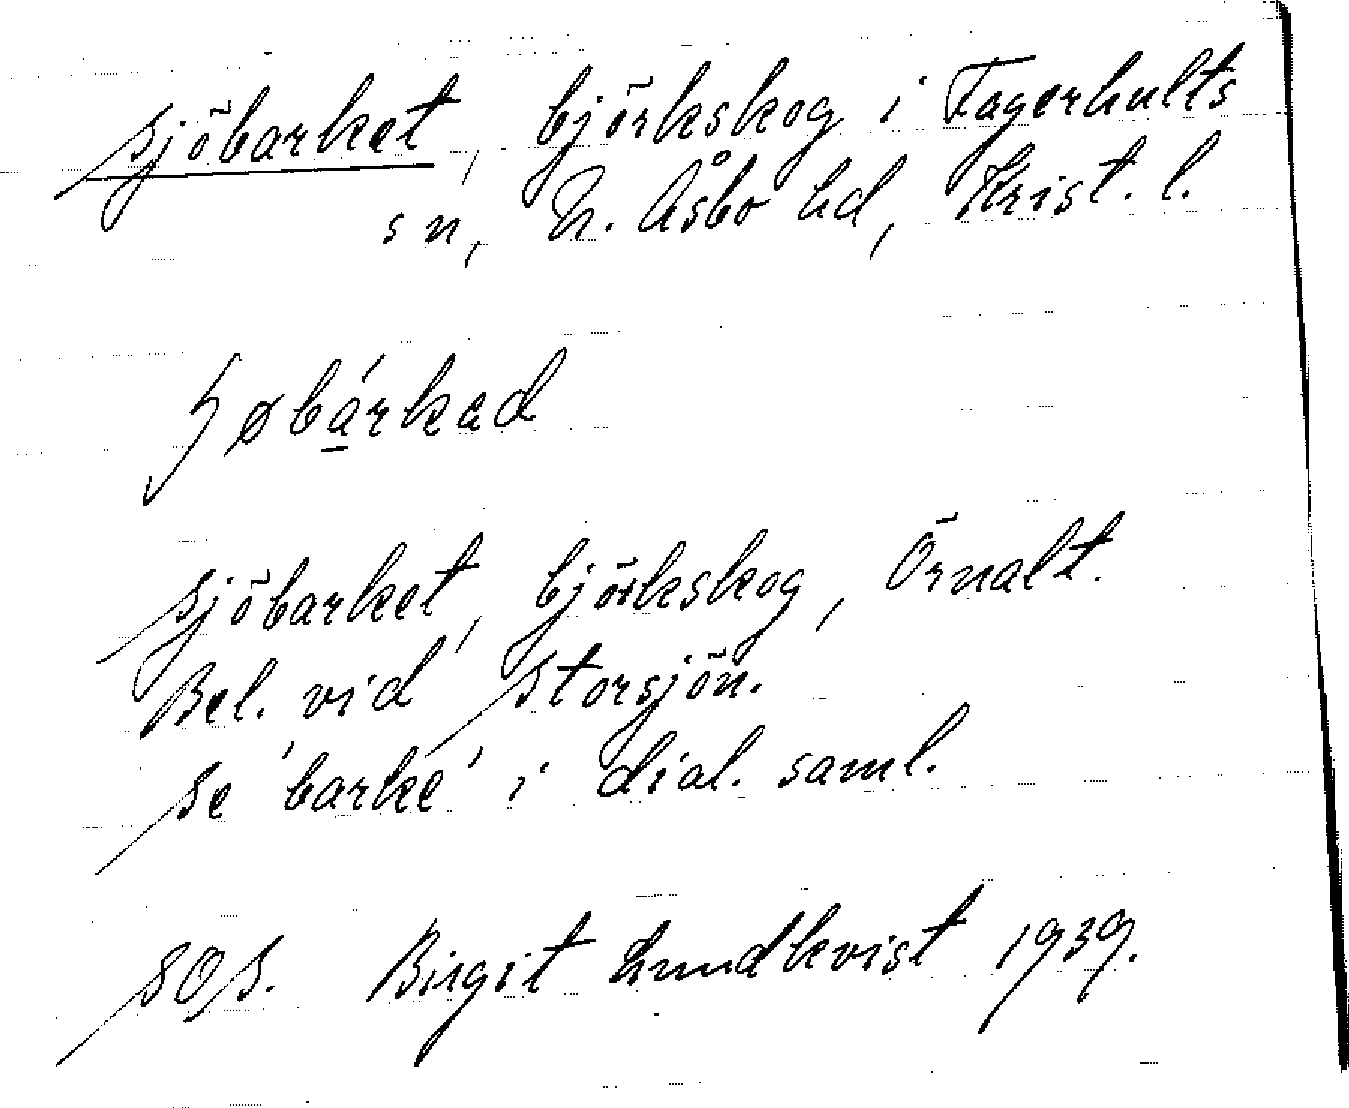 Sjöbarket, björkskog i Fagerhults
sn, N. Åsbo hd, Krist. l.
Sjöbarket, björkskog, Örnalt.
Bel. vid Storsjön.
Se 'barke' i dial. saml.
SOS. Birgit Lundkvist 1939.